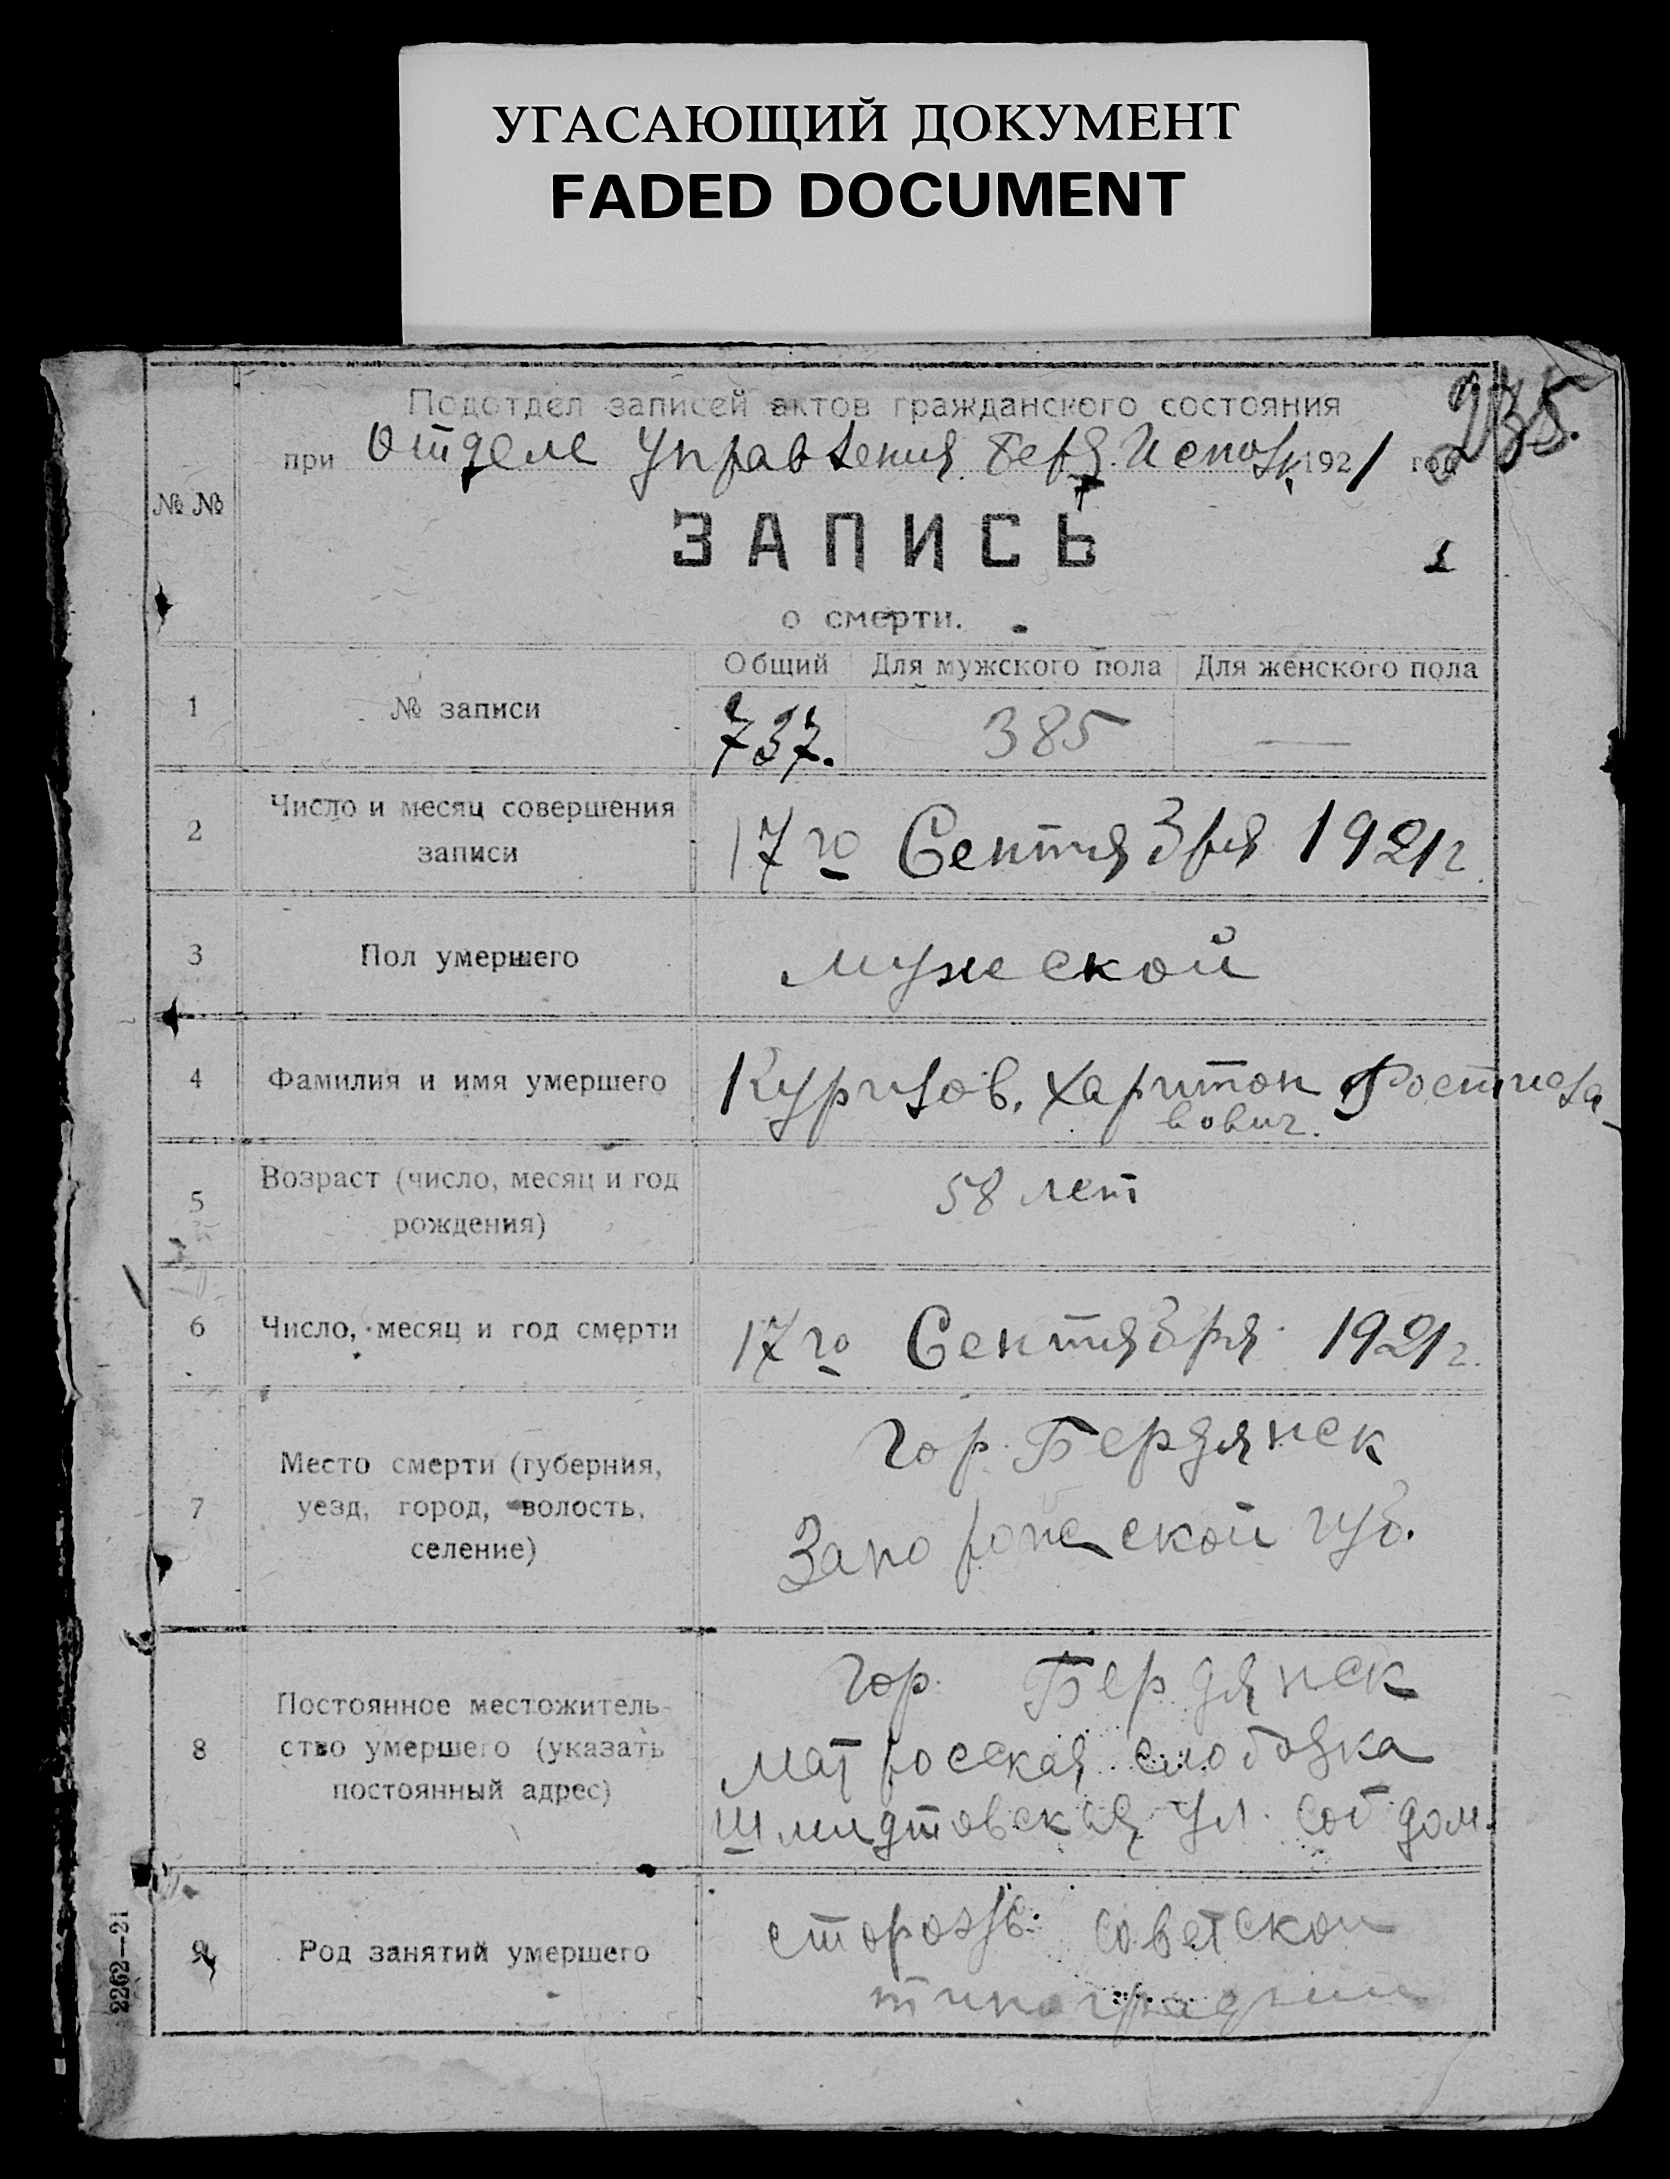 УГАСАЮЩИЙ ДОКУМЕНТ
FADED DOCUMENT
235.
Подотдел записей актов гражданского состояния
при Отделе Управления Берд. Исполк. 1921 год
№ №
ЗАПИСЬ
1
о смерти.
Общий Для мужского пола Для женского пола
1 № записи 737. 385 —
2 Число и месяц совершения
записи 17го Сентября 1921 г.
3 Пол умершего мужеской
4 Фамилия и имя умершего Харитон Ростисла-
вович.
5 Возраст (число, месяц и год
рождения) 58 лет
6 Число, месяц и год смерти 17го Сентября 1921 г.
7 Место смерти (губерния,
уезд, город, волость,
селение)
гор. Бердянск
Запорожской губ.
8 Постоянное местожитель-
ство умершего (указать
постоянный адрес)
гор. Бердянск
матросская слободка
Шмидтовская ул. соб дом.
9 Род занятий умершего
сторожь советской
типографии
2262—21